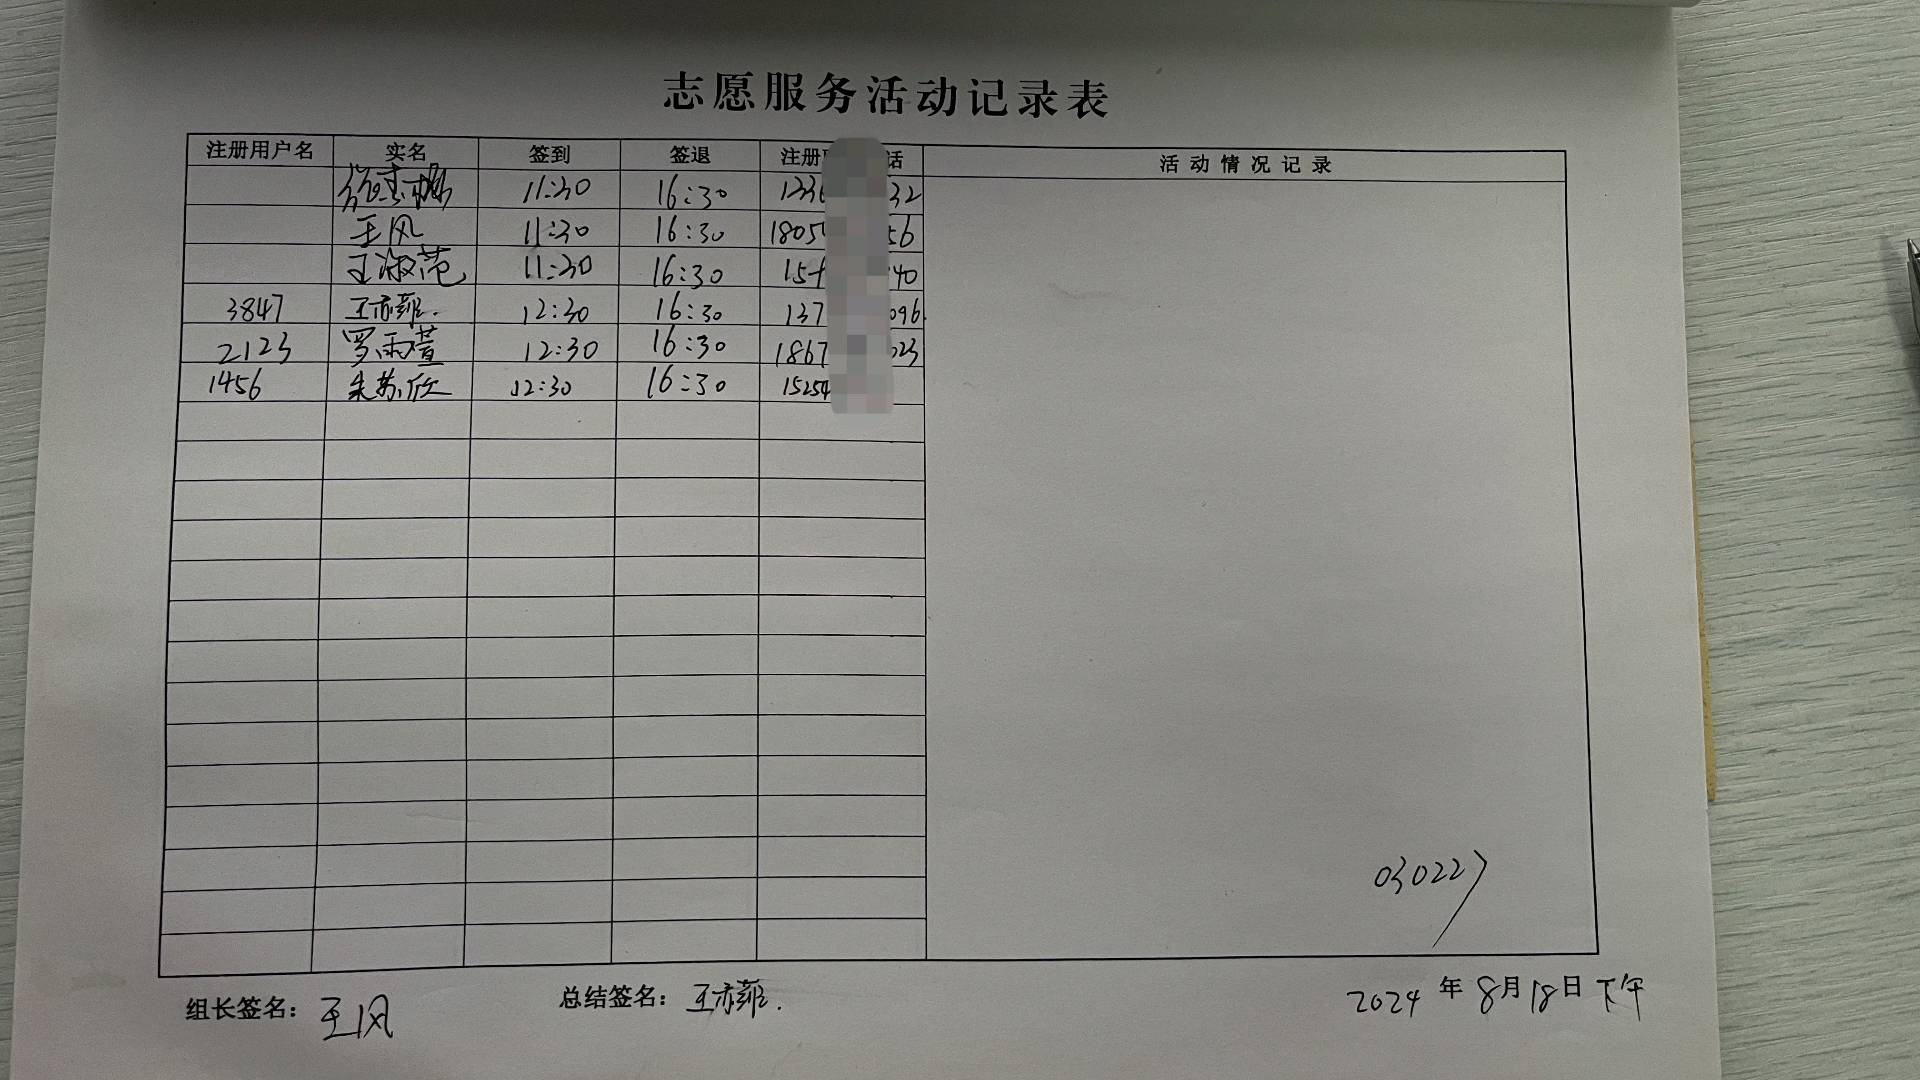 志愿服务活动记录表
注册用户名 实名 签到 签退 注册 话 活动情况记录
11:30 16:30 1336 32
王风 11:30 16:30 1805 56
王淑范 11:30 16:30 15 40
3847 王亦菲. 12:30 16:30 137 096.
2123 罗雨萱 12:30 16:30 1867 023
1456 朱苏欣 12:30 16:30 15254
030227
组长签名: 王风 总结签名: 王亦菲. 2024 年 8月18日 下午